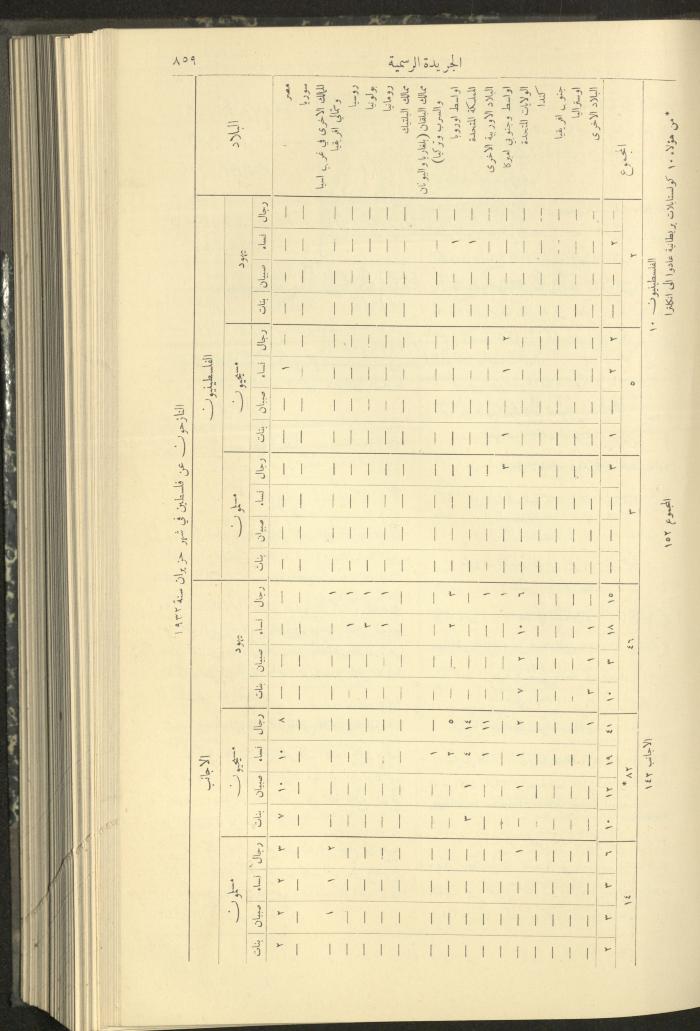 الجريدة الرسمية
٨٥٩
النازحون عن فلسطين في شهر حزيران سنة ١٩٣٢
البلاد الفلسطينيون الاجانب
يهود مسيحيون مسلمون يهود مسيحيون مسلمون
رجال نساء صبيان بنات رجال نساء صبيان بنات رجال نساء صبيان بنات رجال نساء صبيان بنات رجال نساء صبيان بنات رجال نساء صبيان بنات
مصر — — — — — ١ — — — — — — — — — — ٨ ١٠ ١٠ ٧ ٣ ٢ ٢ ٢
سوريا — — — — — — — — — — — — — — — — — — — — — — — —
الممالك الاخرى في غرب اسيا
وشمالي افريقيا — — — — — — — — — — — — ١ — — — — — — — ٢ ١ ١ —
روسيا — — — — — — — — — — — — ١ ١ — — — — — — — — — —
بولونيا — — — — — — — — — — — — ١ ٣ — — — — — — — — — —
رومانيا — — — — — — — — — — — — ١ ١ — — — — — — — — — —
ممالك البلتيك — — — — — — — — — — — — — — — — — — — — — — — —
ممالك البلقان (بلغاريا واليونان
والسرب وتركيا) — — — — — — — — — — — — — — — — — ١ — — — — — —
اواسط اوروبا — ١ — — — — — — — — — — ٣ ٢ — — ٥ ٢ — — — — — —
المملكة المتحدة — ١ — — — — — — — — — — — — — — ١٤ ٤ ١ ٣ — — — —
البلاد الاوربية الاخرى — — — — — — — — — — — — ١ — — — ١١ ١ — — — — — —
اواسط وجنوبي اميركا — — — — ٢ ١ — ١ ٣ — — — ١ — — — — — — — — — — —
الولايات المتحدة — — — — — — — — — — — — ٦ ١٠ ٢ ٧ ٢ ١ ١ — ١ — — —
كندا — — — — — — — — — — — — — — — — — — — — — — — —
جنوب افريقيا — — — — — — — — — — — — — — — — — — — — — — — —
اوستراليا — — — — — — — — — — — — — — — — — — — — — — — —
البلاد الاخرى — — — — — — — — — — — — — ١ ١ ٣ ١ — — — — — — —
المجموع — ٢ — — ٢ ٢ — ١ ٣ — — — ١٥ ١٨ ٣ ١٠ ٤١ ١٩ ١٢ ١٠ ٦ ٣ ٣ ٢
٢ ٥ ٣ ٤٦ ٨٢* ١٤
الفلسطينيون ١٠ الاجانب ١٤٢
المجموع ١٥٢
*من هؤلاء ١٠ كونستابلات بريطانية عادوا الى انكلترا